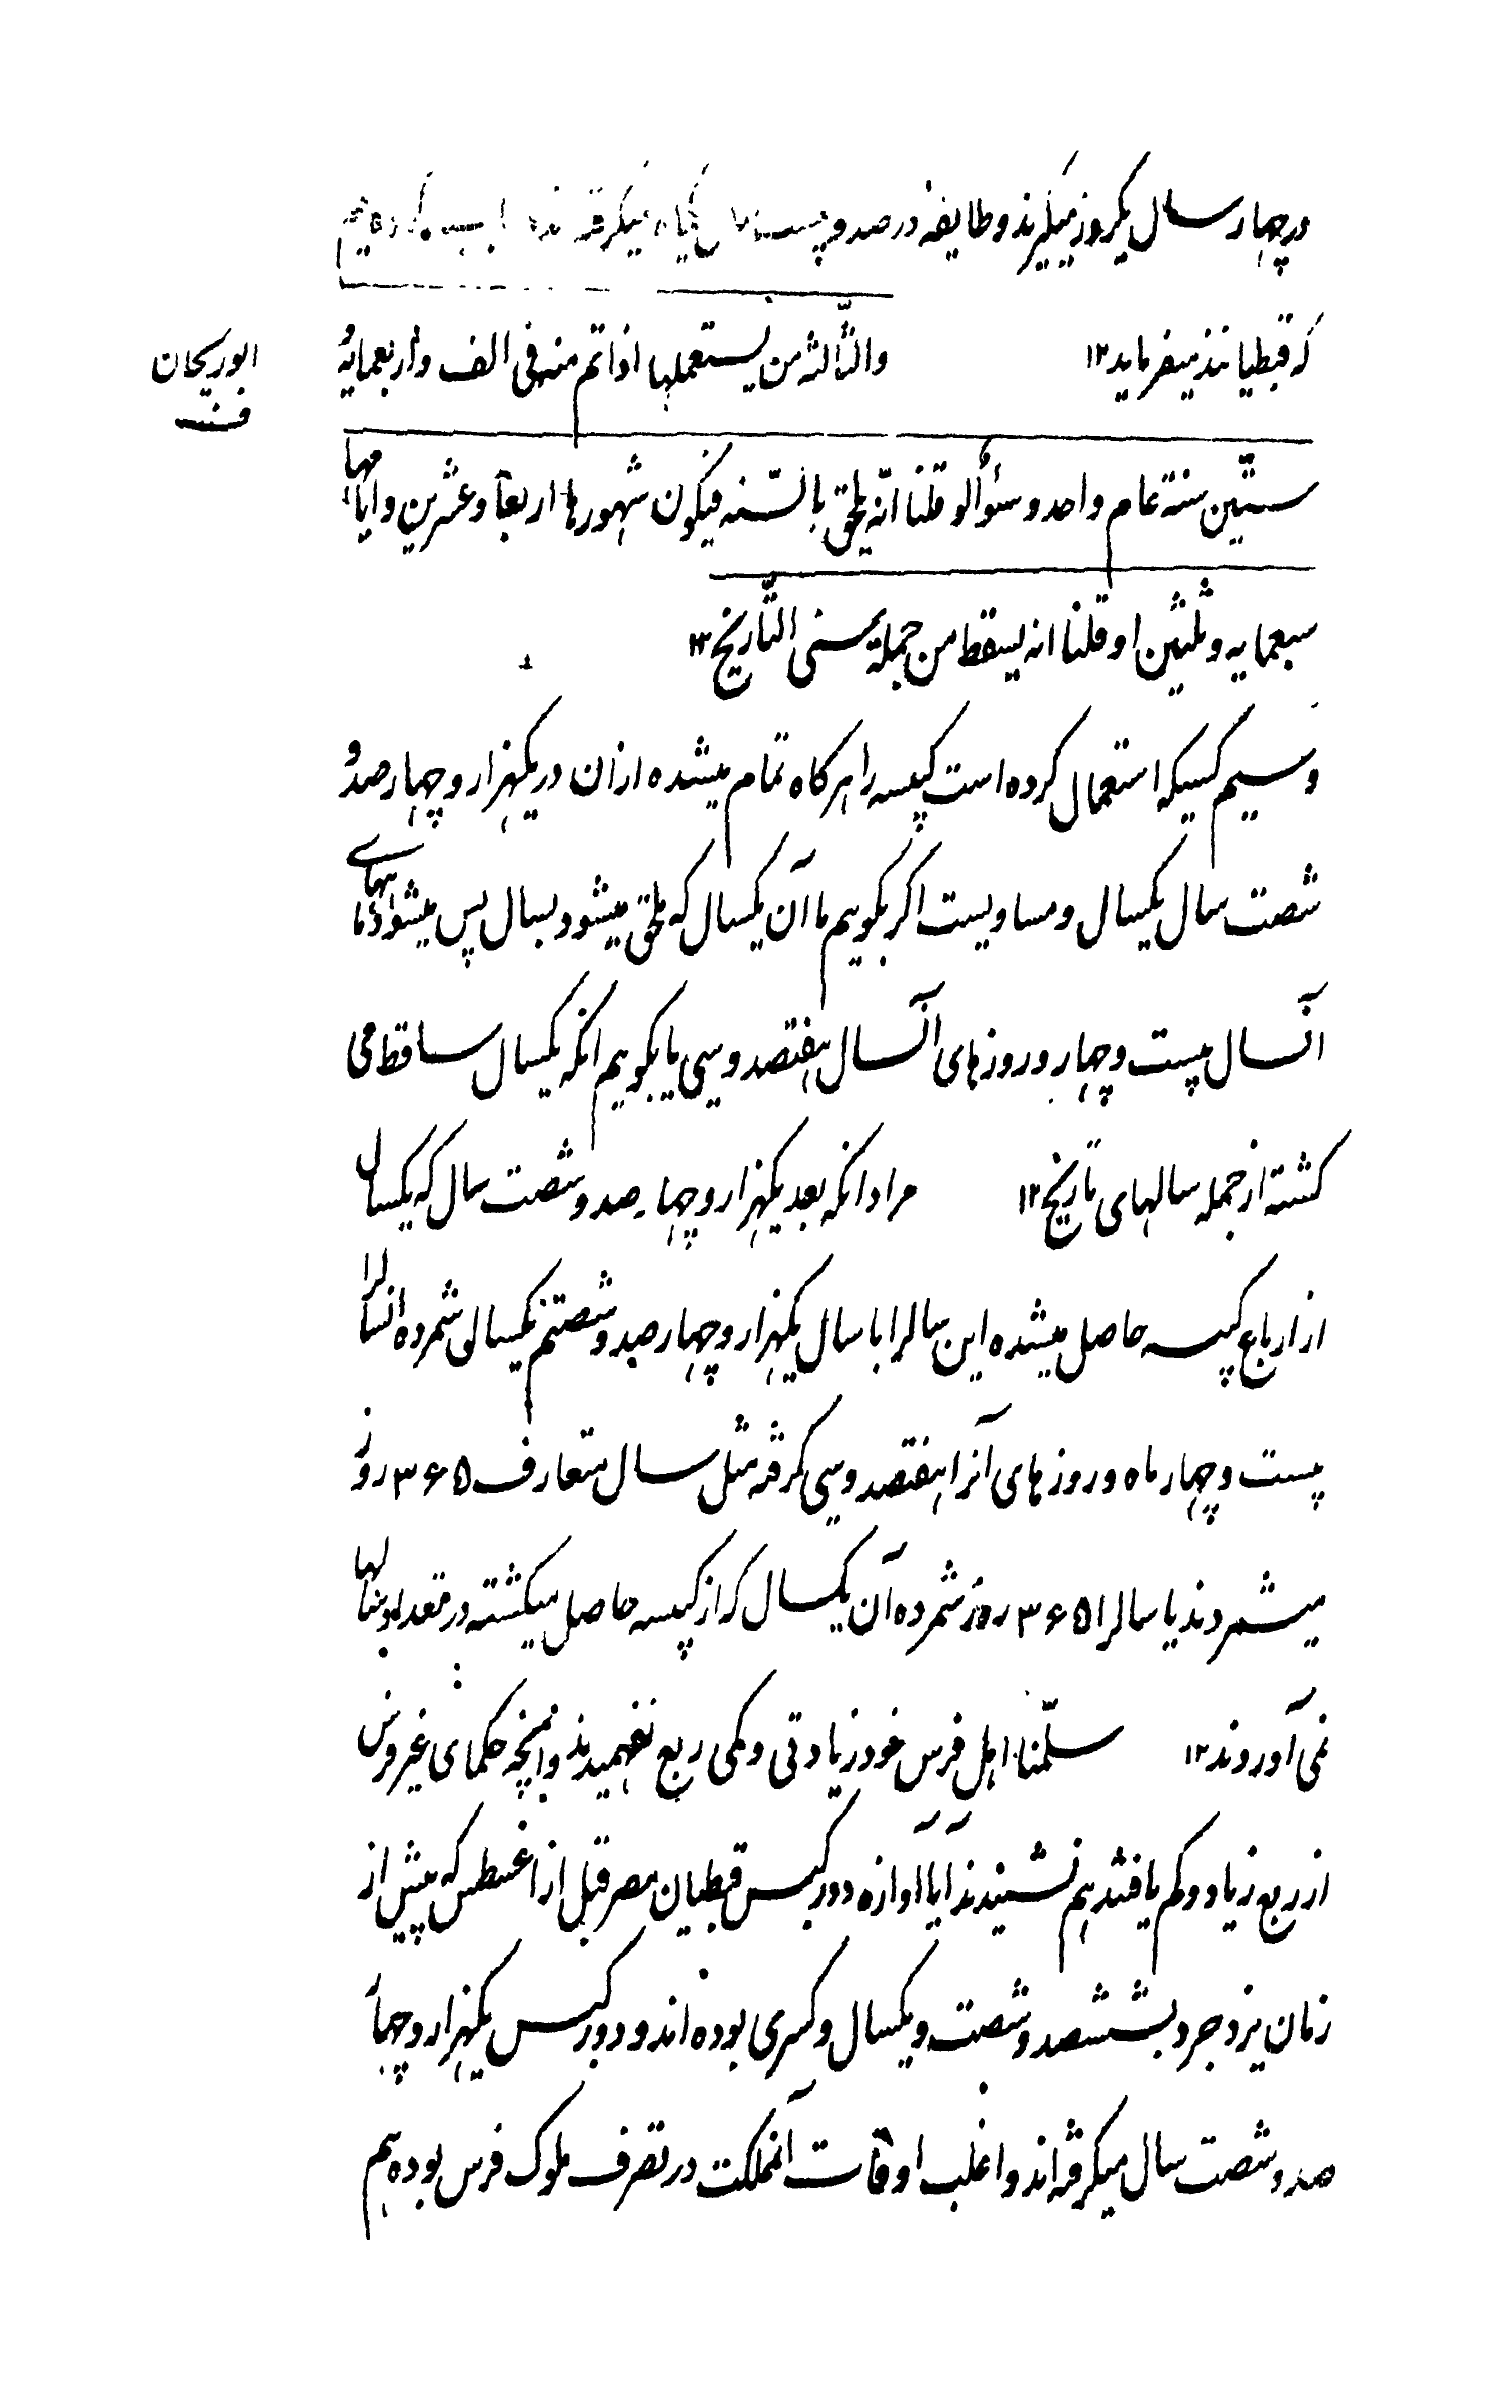 در چهار سال یکروز میگیرند و طایفهٔ در صد و بیست سال یکماه میگرفته اند
که قبطیانند میفرماید ۱۲ والثّالثه من یستعملها اذا تم منه فی الف و اربعمایه و
ابوریحان
ستّین سنة عام واحد و سوأ لو قلنا انّه یلحق بالسّنه فیکون شهورها اربعاً و عشرین و ایامها
سبعمایه و ثلثین او قلنا انه یسقط من جملة سنی التّاریخ ۱۲
و سیم کسیکه استعمال کرده است کبیسه را هرکاه تمام میشده از ان در یکهزار و چهارصد و
شصت سال یکسال و مساویست اکر بکوییم ما آن یکسال که ملحق میشود بسال پس میشود ماههای
آنسال بیست و چهار و روزهای آنسال هفتصد و سی یا بکوییم انکه یکسال ساقط می
کشته از جمله سالهای تاریخ ۱۲ مراد انکه بعد یکهزار و چهارصد و شصت سال که یکسال
از ارباع کبیسه حاصل میشده این سالرا با سال یکهزار و چهارصد و شصتم یکسالی شمرده انسالرا
بیست و چهار ماه و روزهای آنرا هفتصد و سی کرفته مثل سال متعارف ۳۶۵ روز
میشمردند یا سالرا ۳۶۵ روز شمرده آن یکسال که از کبیسه حاصل میکشته در تعداد سالها
نمی آوروند ۱۲ سلّمنا اهل فرس خود زیادتی و کمی ربع نفهمیدند و انچه حکمای غیر فرس
از ربع زیاد و کم یافتند هم نشنیدند آیا آوازه دور کبس قبطیان مصر قبل از اغسطس که پیش از
زمان یزدجرد بششصد و شصت و یکسال و کسری بوده اند و دور کبس یکهزار و چهار
صد و شصت سال میکرفته اند و اغلب اوقات آنمملکت در تصرف ملوک فرس بوده هم